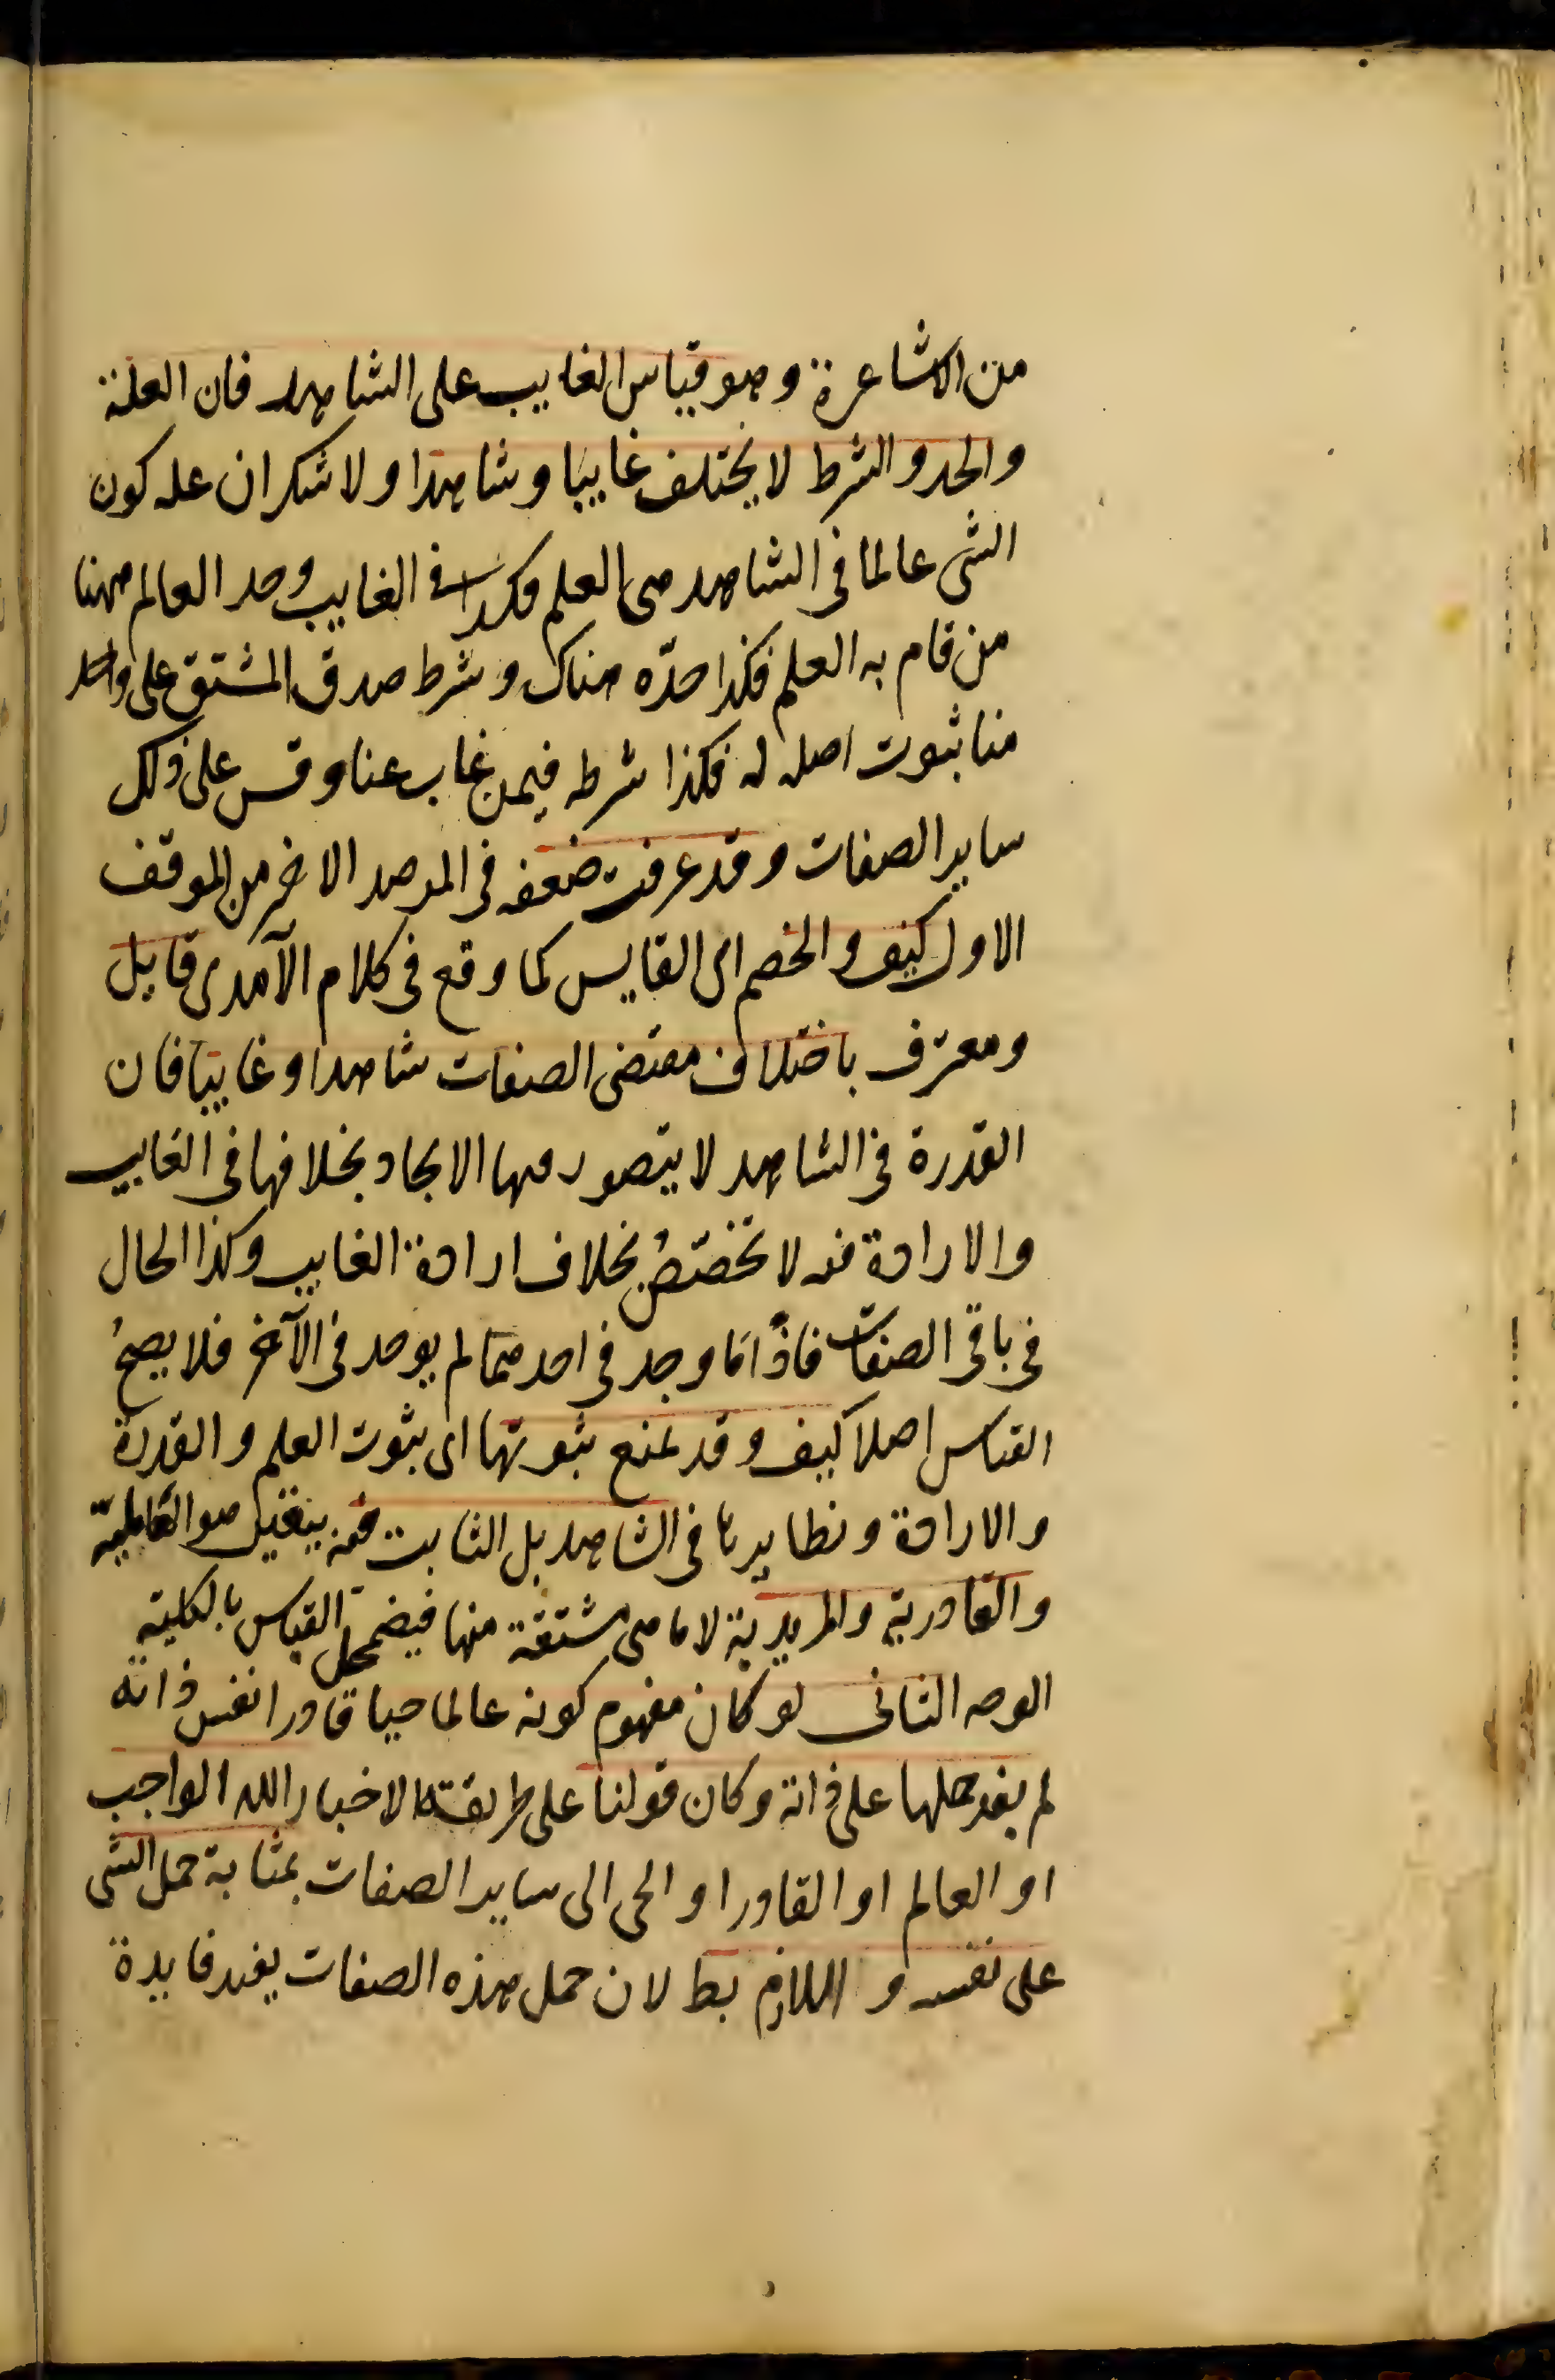 من الاشاعرة وهو قياس الغايب على الشاهد فان العلة
والحد والشرط لا يختلف غايبا وشاهدا ولا شك ان علة كون
الشى عالما فى الشاهد هى العلم فكذا فى الغايب وحد العالم ههنا
من قام به العلم فكذا حدّه هناك وشرط صدق المشتق على واحد
منا ثبوت اصله له فكذا شرطه فيمن غاب عنا وقس على ذلك
ساير الصفات وقد عرفت ضعفه فى المرصد الاخير من الموقف
الاول كيف والخصم اى القايس كما وقع فى كلام الآمدى قايل
ومعترف باختلاف مقتضى الصفات شاهدا وغايبا فان
القدرة فى الشاهد لا يتصور منها الايجاد بخلافها فى الغايب
والارادة فيه لا تخصّصُ بخلاف ارادة الغايب وكذا الحال
فى باقى الصفات فاذًا ما وجد فى احدهما لم يوجد فى الآخر فلا يصحُ
القياس اصلا كيف وقد يمنع ثبوتها اى ثبوت العلم والقدرة
والارادة ونظايرها فى الشاهد بل الثابت فيه بيقين هو العالمية
والقادرية والمريدية لا ما هى مشتقة منها فيضمحل القياس بالكلية
الوجه الثانى لو كان مفهوم كونه عالما حيا قادرا نفس ذاته
لم يفد حملها على ذاته وكان قولنا على طريقة الاخبار الله الواجب
او العالم او القادر او الحى الى ساير الصفات بمثابة حمل الشى
على نفسه و اللازم بط لان حمل هذه الصفات يفيد فايدة